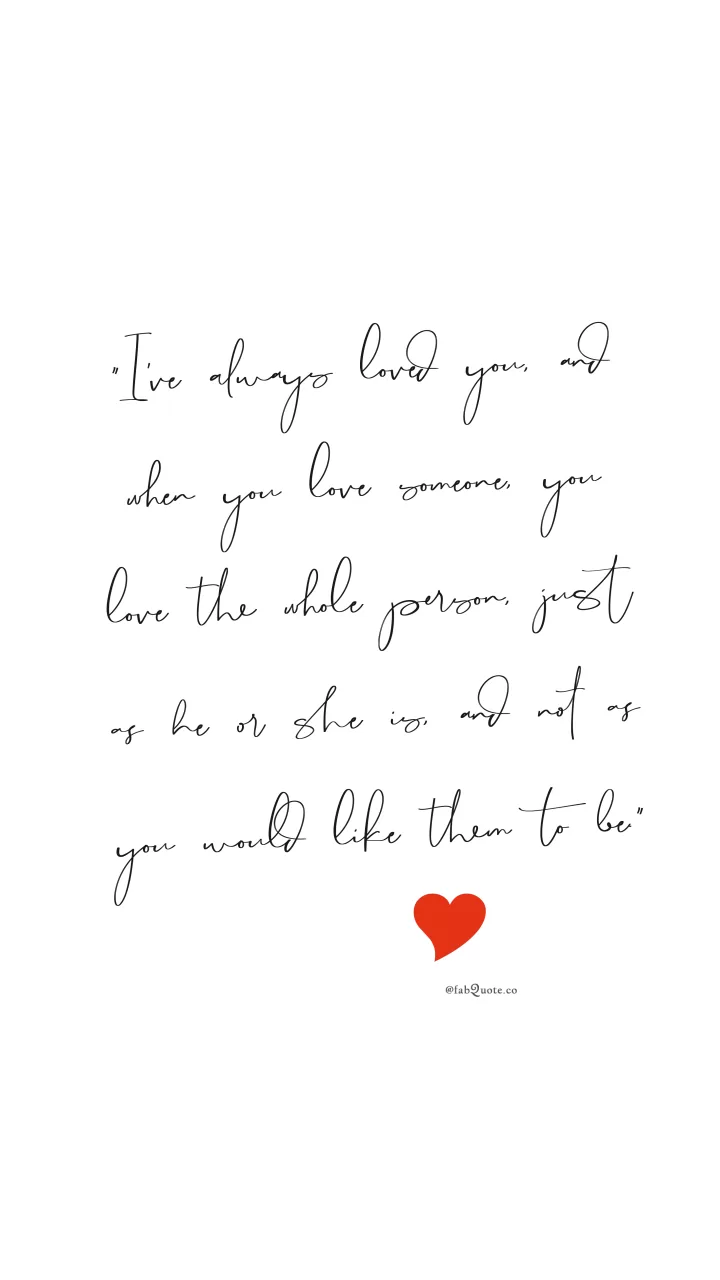 "I've always loved you, and
when you love someone, you
love the whole person, just
as he or she is, and not as
you would like them to be."
@fabQuote.co